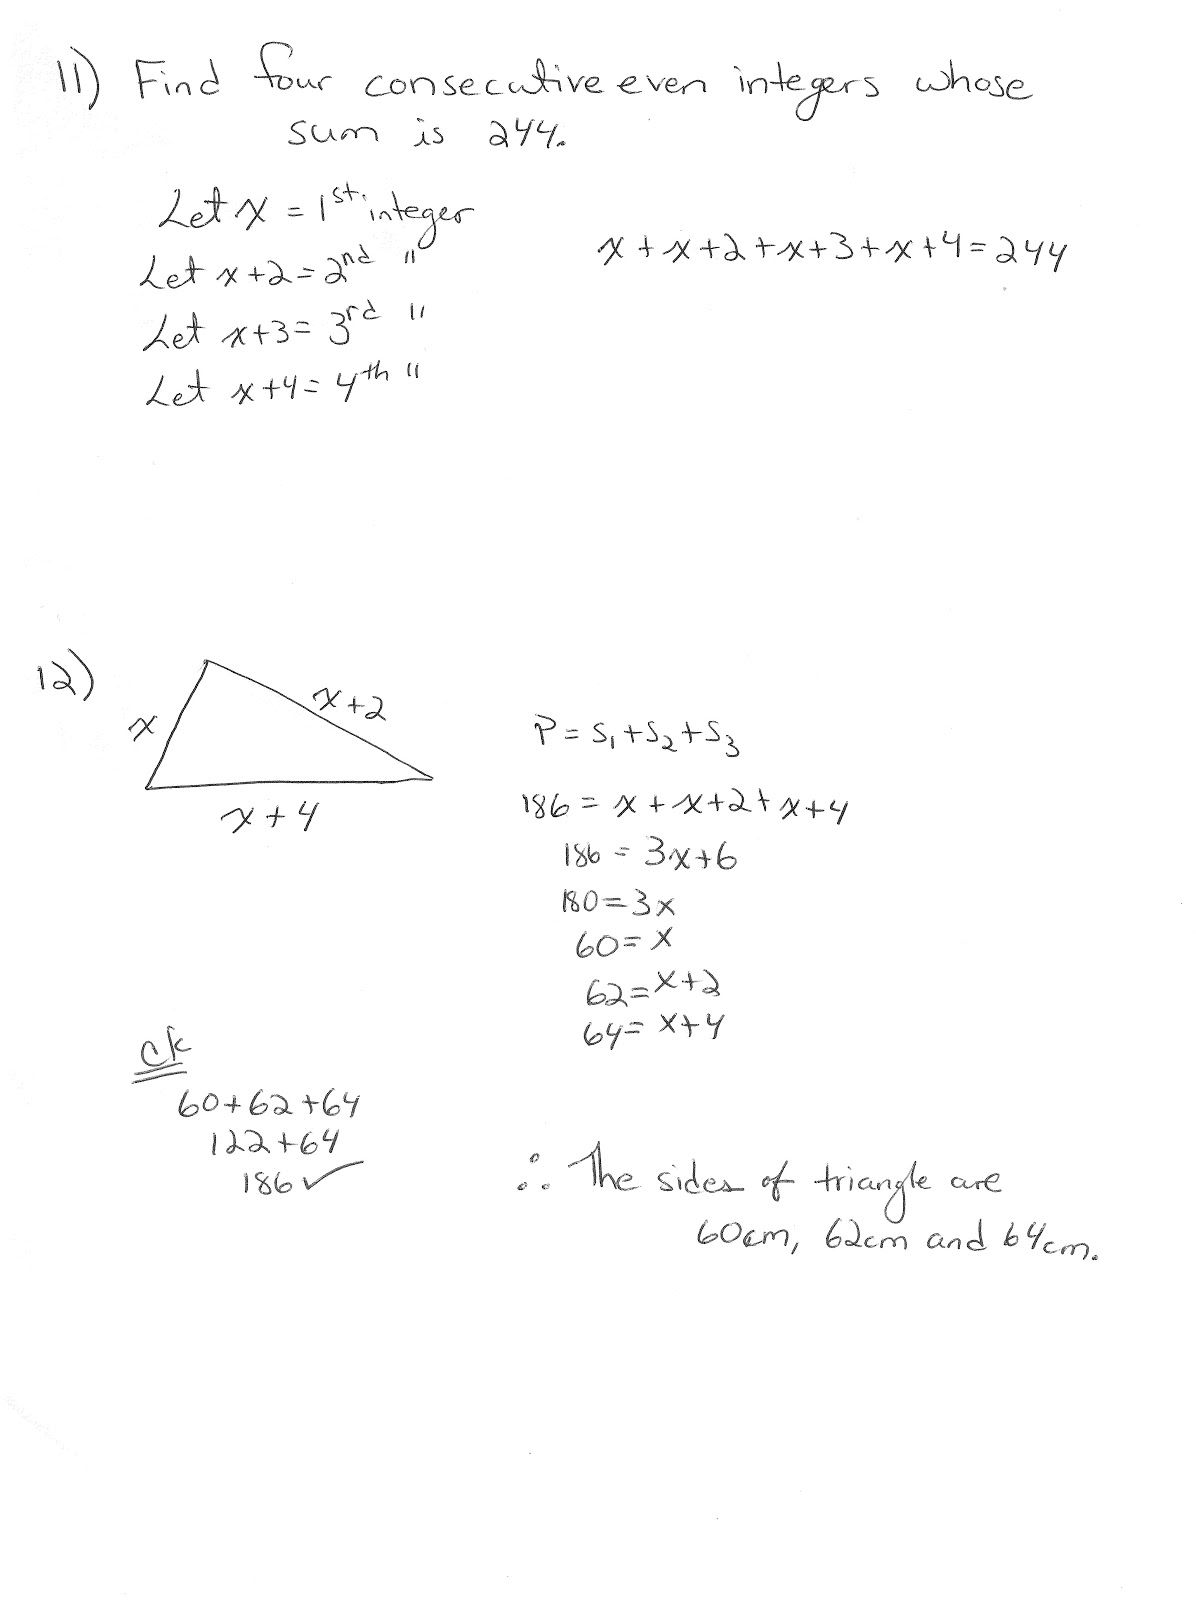 11) Find four consecutive even integers whose
sum is 244.
Let x = 1st integer
Let x+2 = 2nd "
Let x+3 = 3rd "
Let x+4 = 4th "
x + x+2 + x+3 + x+4 = 244
12)
x
x+2
x+4
P = S₁+S₂+S₃
186 = x + x+2 + x+4
186 = 3x+6
180 = 3x
60 = x
62 = x+2
64 = x+4
ck
60+62+64
122+64
186 ✓
∴ The sides of triangle are
60cm, 62cm and 64cm.